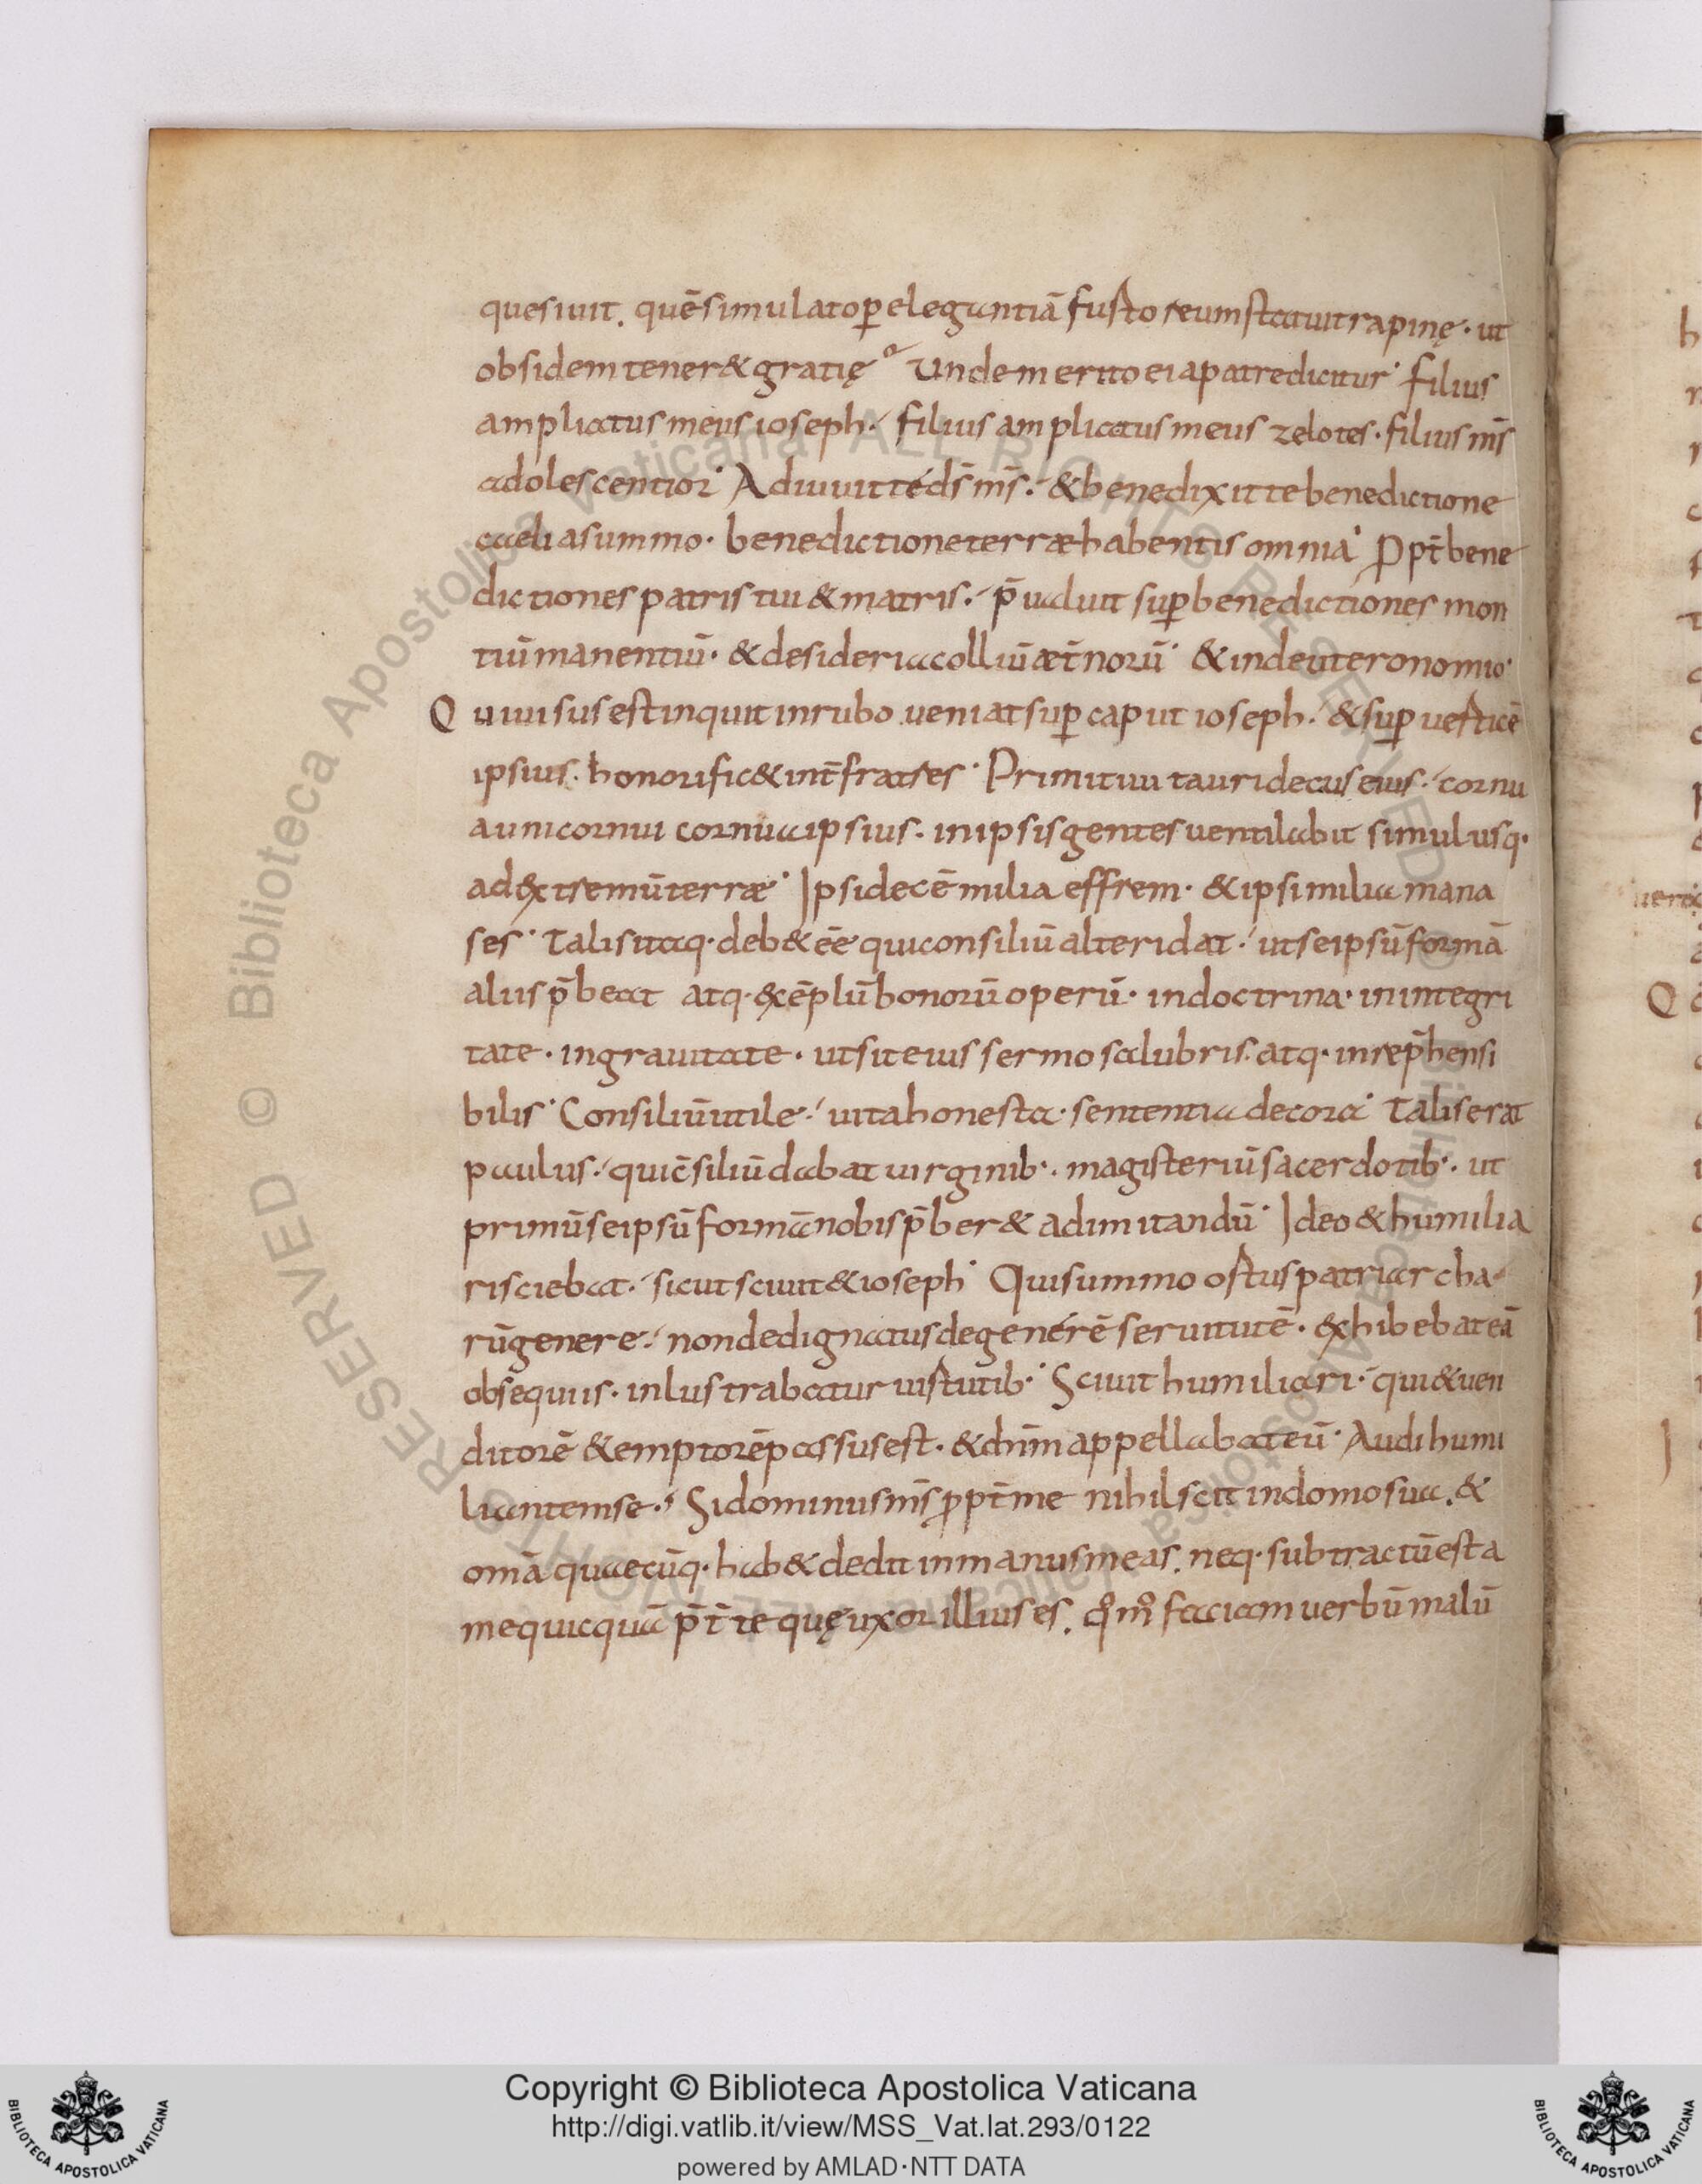 quesiuit. quē simulato p̄ elegantiā furto reum statuit rapinę · ut
obsidem tener& gratię Unde merito ei a patre dicitur · filius
ampliatus meus ioseph · filius ampliatus meus zelotes · filius m̄s
adolescentior · Adiuuit te d̄s m̄s · & benedixit te benedictione
caeli a summo · benedictione terræ habentis omnia · Ppt̄ bene
dictiones patris tui & matris · p̄ualuit sup benedictiones mon
tiū manentiū · & desideria colliū æt̄norū · & in deuteronomio ·
Qui uisus est inquit in rubo ueniat sup caput ioseph · & sup uerticē
ipsius · honorific& int̄ fratres · Primitiui tauri decus eius · cornu
a unicornui cornua ipsius · in ipsis gentes uentilabit simul usq·
ad &xtremū terræ · Ipsi decē milia effrem · & ipsi milia mana
ses · Talis itaq· deb& ēē qui consiliū alteri dat · ut se ipsū formā
aliis p̄beat atq· &xēplū bonorū operū · in doctrina · in integri
tate · in grauitate · ut sit eius sermo salubris atq· inrep̄hensi
bilis · Consiliū utile · uita honesta · sententia decora · Talis erat
paulus · qui c̄siliū dabat uirginib· · magisteriū sacerdotib· · ut
primū se ipsū formā nobis p̄ber& ad imitandū · Ideo & humilia
ri sciebat · sicut sciuit & ioseph · Qui summo ortus patriarcha
rū genere · non dedignatus degenerē seruitutē · &xhibebat eā
obsequiis · inlustrabatur uirtutib· · Sciuit humiliari · qui & uen
ditorē & emptorē passus est · & dn̄m appellabat eū · Audi humi
liantem se · Si dominus m̄s ppt̄ me nihil scit in domo sua · &
omā quaecūq· hab& dedit in manus meas. neq· subtractū est a
me quicquā p̄t̄ te quę uxor illius es. qm̊ faciam uerbū malū
Q
Copyright © Biblioteca Apostolica Vaticana
http://digi.vatlib.it/view/MSS_Vat.lat.293/0122
powered by AMLAD·NTT DATA
BIBLIOTECA APOSTOLICA VATICANA
BIBLIOTECA APOSTOLICA VATICANA